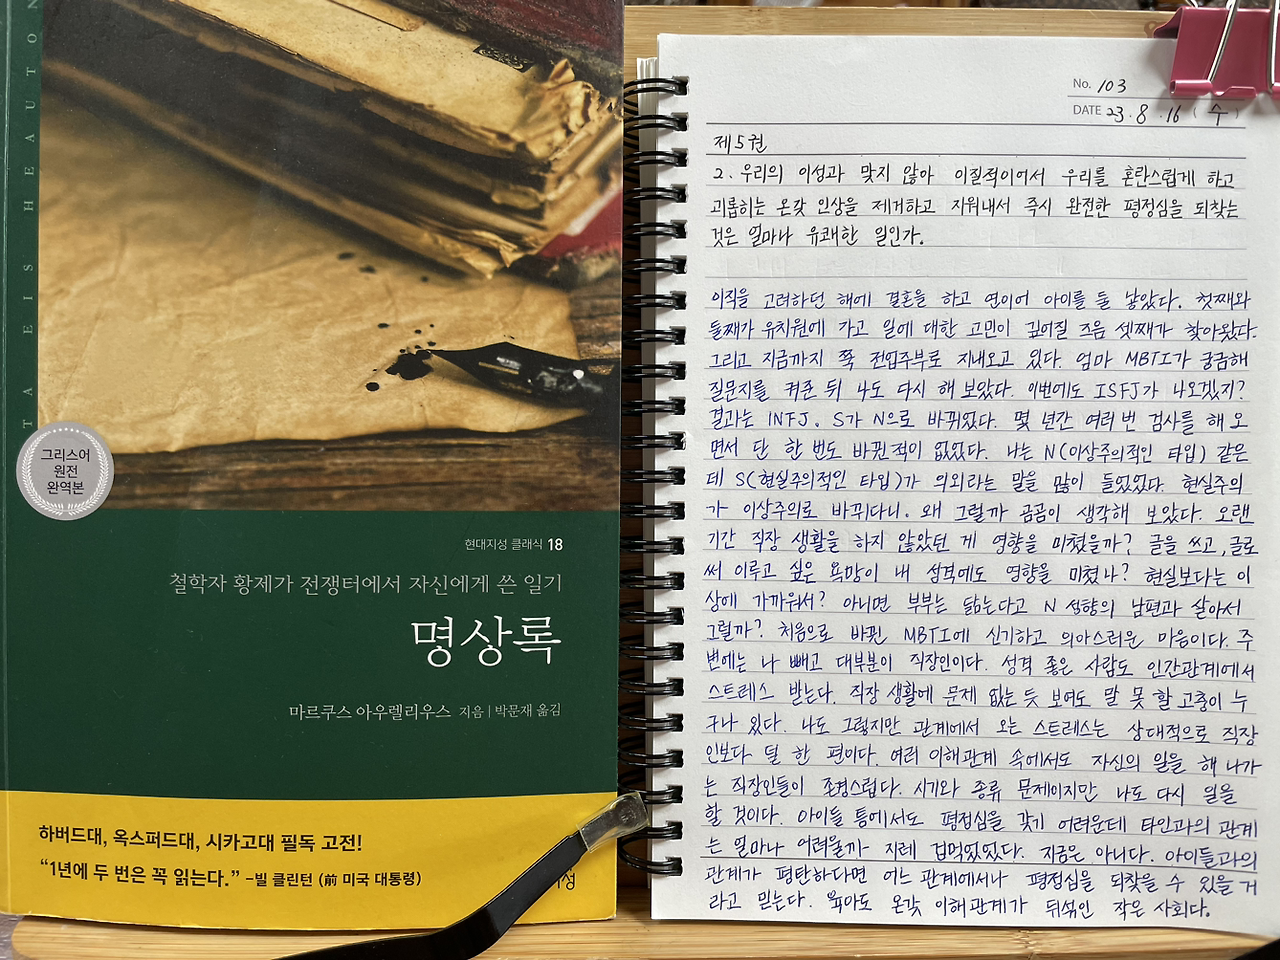 TA EIS HEAUTON
그리스어
원전
완역본
현대지성 클래식 18
철학자 황제가 전쟁터에서 자신에게 쓴 일기
명상록
마르쿠스 아우렐리우스 지음 | 박문재 옮김
하버드대, 옥스퍼드대, 시카고대 필독 고전!
“1년에 두 번은 꼭 읽는다.” -빌 클린턴 (前 미국 대통령)
No. 103
DATE 23. 8. 16 (수)
제5권
2. 우리의 이성과 맞지 않아 이질적이어서 우리를 혼란스럽게 하고
괴롭히는 온갖 인상을 제거하고 지워내서 즉시 완전한 평정심을 되찾는
것은 얼마나 유쾌한 일인가.
이직을 고려하던 해에 결혼을 하고 연이어 아이를 둘 낳았다. 첫째와
둘째가 유치원에 가고 일에 대한 고민이 깊어질 즈음 셋째가 찾아왔다.
그리고 지금까지 쭉 전업주부로 지내오고 있다. 엄마 MBTI가 궁금해
질문지를 켜준 뒤 나도 다시 해 보았다. 이번에도 ISFJ가 나오겠지?
결과는 INFJ. S가 N으로 바뀌었다. 몇 년간 여러 번 검사를 해 오
면서 단 한 번도 바뀐적이 없었다. 나는 N(이상주의적인 타입) 같은
데 S(현실주의적인 타입)가 의외라는 말을 많이 들었었다. 현실주의
가 이상주의로 바뀌다니. 왜 그럴까 곰곰이 생각해 보았다. 오랜
기간 직장 생활을 하지 않았던 게 영향을 미쳤을까? 글을 쓰고, 글로
써 이루고 싶은 욕망이 내 성격에도 영향을 미쳤나? 현실보다는 이
상에 가까워서? 아니면 부부는 닮는다고 N 성향의 남편과 살아서
그럴까? 처음으로 바뀐 MBTI에 신기하고 의아스러운 마음이다. 주
변에는 나 빼고 대부분이 직장인이다. 성격 좋은 사람도 인간관계에서
스트레스 받는다. 직장 생활에 문제 없는 듯 보여도 말 못 할 고충이 누
구나 있다. 나도 그렇지만 관계에서 오는 스트레스는 상대적으로 직장
인보다 덜 한 편이다. 여러 이해관계 속에서도 자신의 일을 해 나가
는 직장인들이 존경스럽다. 시기와 종류 문제이지만 나도 다시 일을
할 것이다. 아이들 틈에서도 평정심을 갖기 어려운데 타인과의 관계
는 얼마나 어려울까 지레 겁먹었었다. 지금은 아니다. 아이들과의
관계가 평탄하다면 어느 관계에서나 평정심을 되찾을 수 있을 거
라고 믿는다. 육아도 온갖 이해관계가 뒤섞인 작은 사회다.